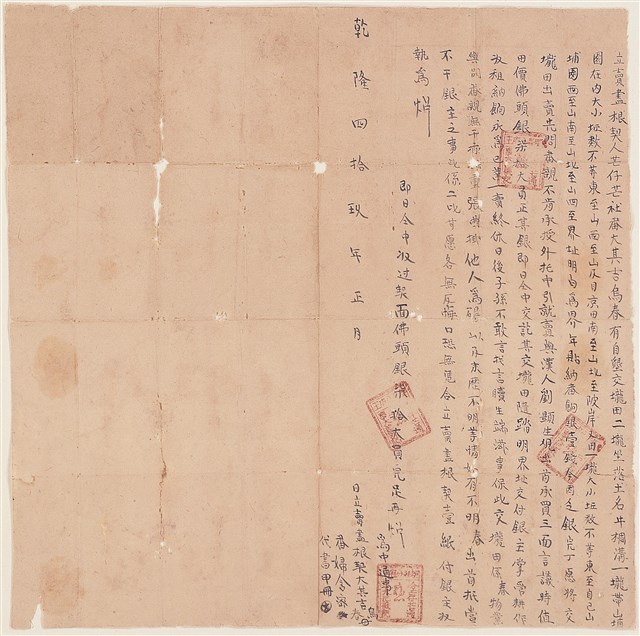 立賣盡根契人芒仔芒社番大其吉烏春有自墾交壠田二壠坐落土名牛稠溝一壠帶山埔
園在內大小坵数不等東至山西至山及目
田南至山北至坡岸又田一壠大小坵数不等東至自己山
埔園西至山南至山北至山四至界址明白為界年貼納番餉銀壹錢今因乏銀完丁愿將交
壠田出賣先問番親不肯承受外托中引就賣與漢人劉顯生
出首承買三面言議時值
田價佛頭銀柒拾大員正其銀即日仝中交訖其交壠田隨踏明界址交付銀主掌管耕作
收租納餉永為己業一賣終休日後子孫不敢言找言贖生端滋事保此交壠田係春物業
與別番親無干亦無重張典掛他人為碍以及來歷不明等情如有不明春出首抵當
不干銀主之事此係二比甘愿各無反悔口恐無憑今立賣盡根契壹紙付銀主收
執為炤
即日仝中收过契面佛頭銀柒拾大員完足再炤
乾隆四拾玖年正月
日立賣盡根契大其吉烏春
為中通事
番婦
代書甲冊